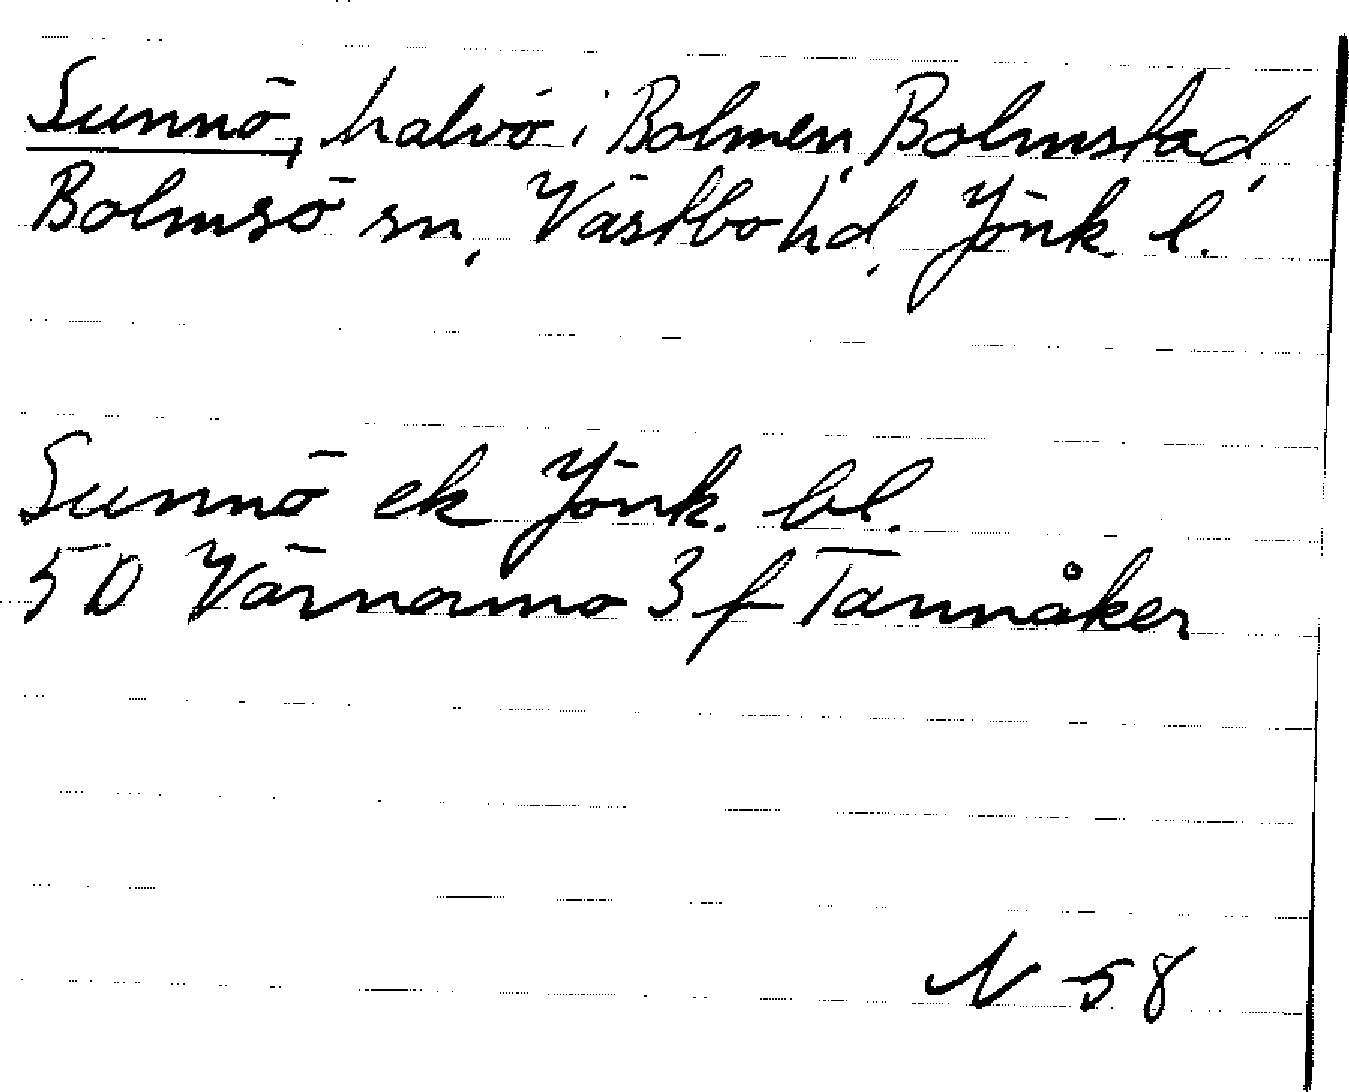 Sunnö, halvö i Bolmen, Bolmstad,
Bolmsö sn, Västbo hd, Jönk. l.
Sunnö ek Jönk. bl.
5D Värnamo 3f Tannåker
N 58